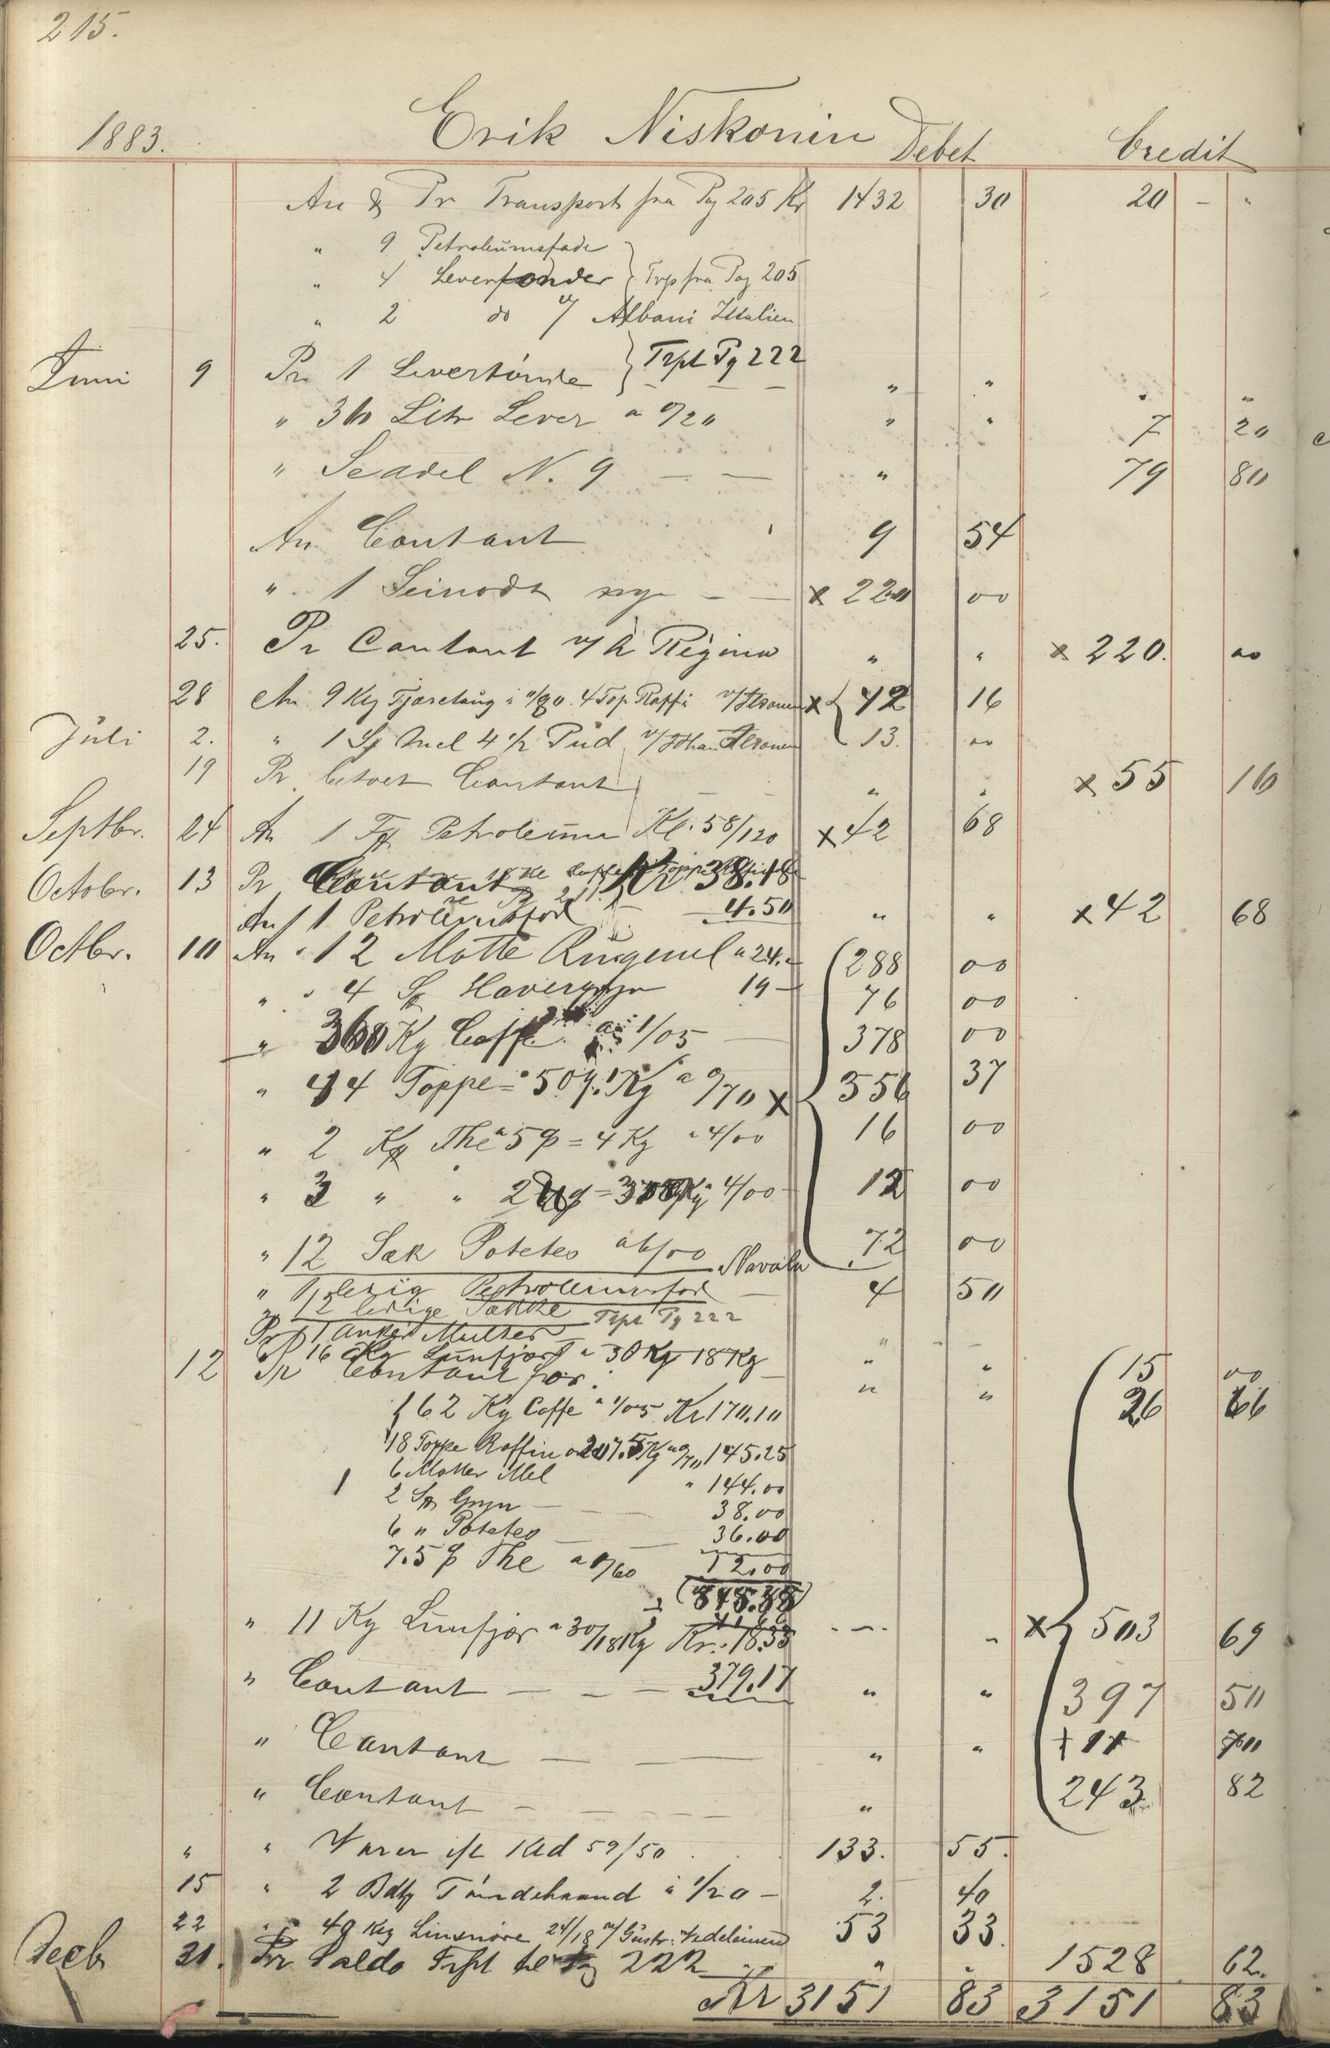 215.
1883. Erik Niskonin Debet Credit
An & Pr Transport fra Pag 205 Kr 1432 30 20 - "
" 9 Petroleumsfade
" 4 Levertønder Trp fra Pag 205
" 2 do v/ Albani Ittalien
Juni 9 Pr 1 Levertønde Trpt Pg 222 " " " "
" 36 Litr Lever a 0/20 " " 7 20
" Seadel N. 9 — — " 79 80
An Contant 9 54
" 1 Seinodt ny — — x 220 00
25. Pr Contant v/ A Regina " " x 220. 00
28 An 9 Kg Tjæretaug a 0/80. 4 Top Raffi v/ x 42 16
Juli 2. " 1 Sæ Mel 4 1/2 Pud v/ Johan 13. 00
19 Pr Contant " " x 55 16
Septbr. 24 An 1 Fa Petroleum Kl. 58/120 x 42 68
Octobr. 13 Pr Contant Kr 38.18
An 1 Petroleumsfad 4.50 " " x 42 68
Octbr. 10 An " 12 Matte Rugmel a 24. 288 00
" " 4 Sæ Havergryn 19 — 76 00
" 360 Kg Caffe a 1/05 — 378 00
" 44 Toppe = 507.1 Kg a 0/70 x 356 37
" 2 The a 5 = 4 Kg a 4/00 16 00
" 3 " " 2 = 3 Kg 4/00 12 00
" 12 Sæk Poteteo a 6/00 Navala 72 00
" 1 ledig Petroleumsfad — 4 50
12 ledige Sække Trpt Pg 222
Pr 1 Anker Multer " - " 15 00
" 16 Kg Lunfjær a 30 Kr 18 Kg " " 26 66
12 Pr Contant for:
162 Kg Caffe a 1/05 Kr 170.10
18 Toppe Raffinade 207.5 Kg a 0/70 145.25
6 Matter Mel " 144.00
2 Sæ Gryn — 38.00
6 " Poteteo — 36.00
7.5 The a 1/60 12.00
" 11 Kg Lunfjær a 30/18 Kg Kr. 18.33 - - - " x 503 69
" Contant — — — 379.17 " " 397 50
" Contant — — — " "
" Contant — — — " 243 82
" " Varer ift Kld 59/50 133. 55.
15 " 2 Tøndebaand a 1/20 — 2. 40
22 " " 40 Kg Linsnøre 24/18 v/ Gustv. 53 33.
Decb 31. Pr Saldo Trpt til Pag 222 " " 1528 62.
Kr 3151 83 3151 83